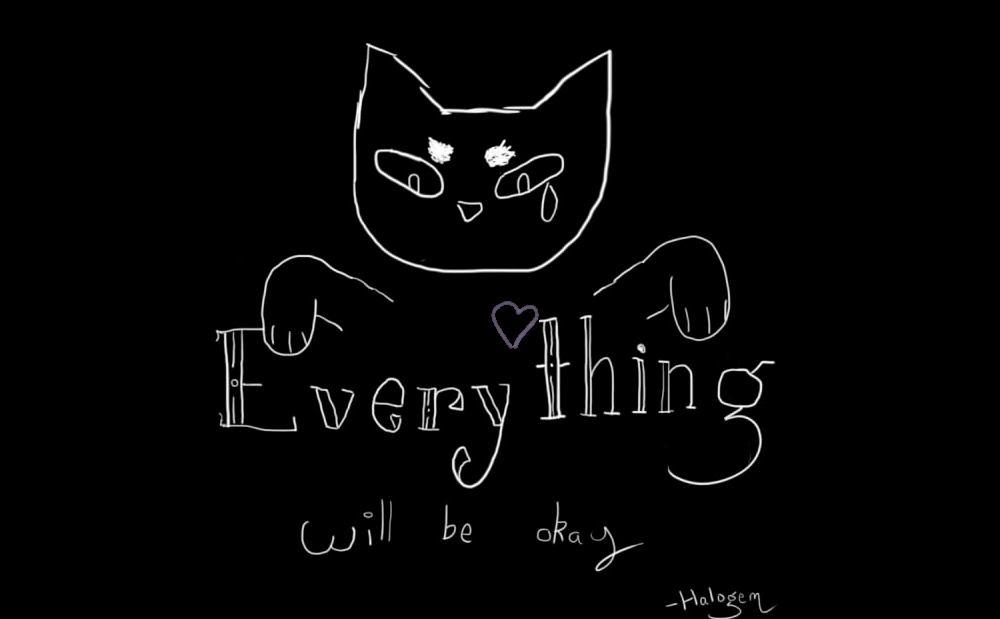 Everything
will be okay
-Halogem